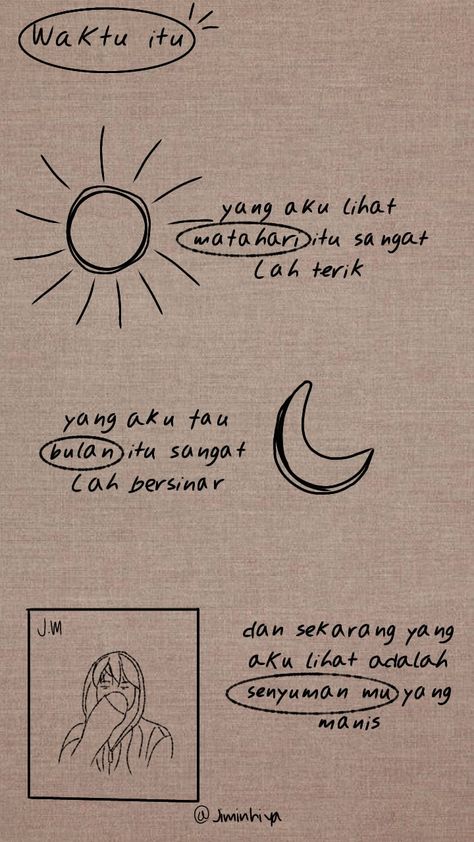 Waktu itu
yang aku lihat
matahari itu sangat
Lah terik
yang aku tau
bulan itu sangat
Lah bersinar
J.M
dan sekarang yang
aku lihat adalah
senyuman mu yang
manis
@Jiminhiya